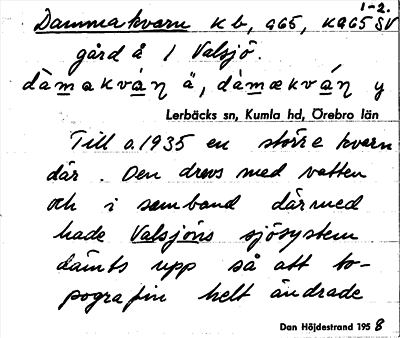 1-2.
Dammakvarn Kb, a65, Ka65 SV
gård å 1 Valsjö.
Lerbäcks sn, Kumla hd, Örebro län
Till o. 1935 en större kvarn
där. Den drevs med vatten
och i samband därmed
hade Valsjöns sjösystem
dämts upp så att to-
pografin helt ändrade
Dan Höjdestrand 1958